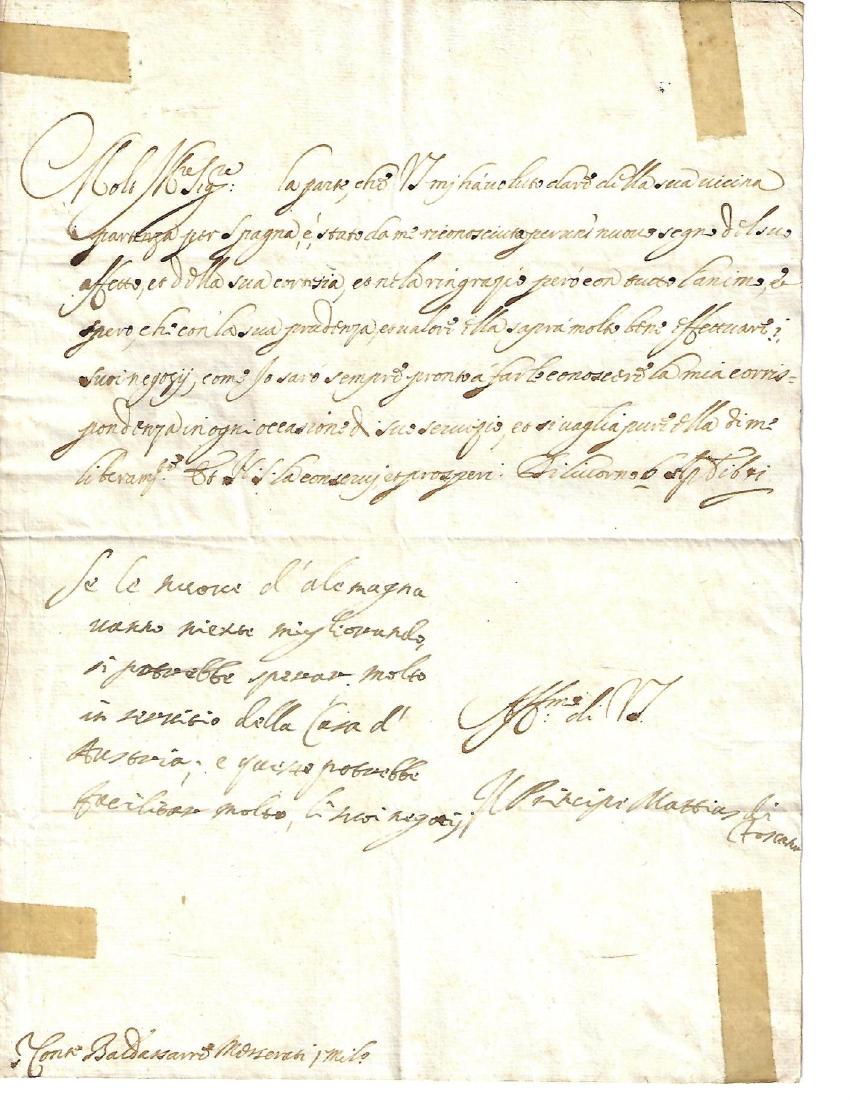 Molt Ill.re Sig.re: la parte, che VS mj há voluto dare della sua vicina
partenza per Spagna, é stato da me riconosciuta per uns nuovo segno del suo
affetto, et della sua cortesia, et ne la ringrazio peró con tutto l'animo, e
spero, che con la sua prudenza, et valore ella saprá molto bene effettuare i
suoi negozij, come Io saró sempre pronto á farle conoscere la mia corris=
pondenza in ogni occasione di suo servizio, et si vaglia pure ella di me
liberam.te Et N. S. la conservj et prosperi. Di Livorno 6
Se le nuove d'alemagna
vanno niente migliorando,
si potrebbe sperar molto
in servitio della Casa d'
Austria; e questo potrebbe
facilitar molto, li suoi negotij
Aff.mo di VS
Il Principe Mattias di
Toscana
Conte Baldassarre Messerati Mil.o